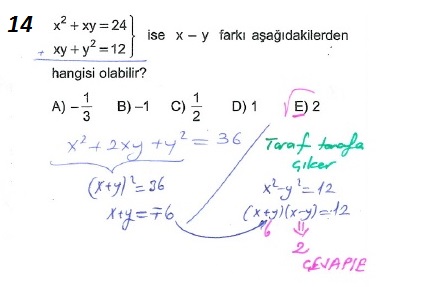 14 x² + xy = 24
+ xy + y² = 12 } ise x – y farkı aşağıdakilerden
hangisi olabilir?
A) – 1/3 B) –1 C) 1/2 D) 1 √E) 2
x² + 2xy + y² = 36
(x+y)² = 36
x+y = ∓6
Taraf tarafa
çıkar
x² – y² = 12
(x+y)(x–y) = 12
6 2
CEVAP E